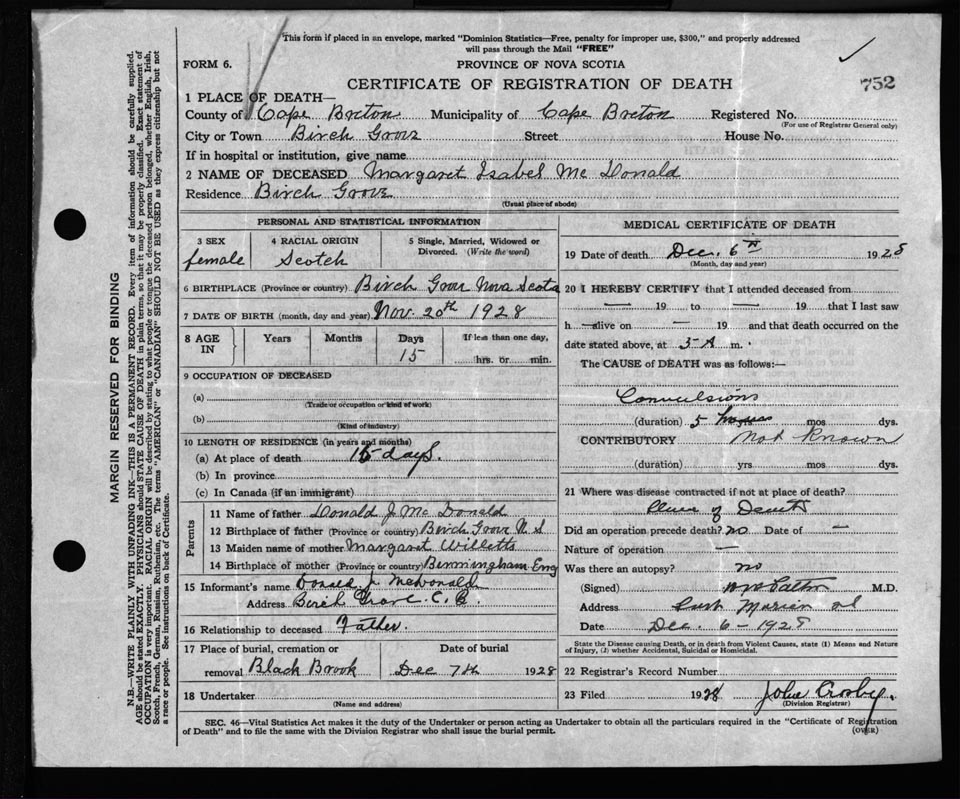 This form if placed in an envelope, marked "Dominion Statistics—Free, penalty for improper use, $300," and properly addressed
will pass through the Mail "FREE"
FORM 6.
PROVINCE OF NOVA SCOTIA
CERTIFICATE OF REGISTRATION OF DEATH
752
1 PLACE OF DEATH—
County of Cape Breton Municipality of Cape Breton Registered No.
(For use of Registrar General only)
City or Town Birch Grove Street House No.
If in hospital or institution, give name
2 NAME OF DECEASED Margaret Isabel Mc Donald
Residence Birch Grove
(Usual place of abode)
PERSONAL AND STATISTICAL INFORMATION
3 SEX 4 RACIAL ORIGIN 5 Single, Married, Widowed or
Divorced. (Write the word)
female Scotch
6 BIRTHPLACE (Province or country) Birch Grove Nova Scota
7 DATE OF BIRTH (month, day and year) Nov. 20th 1928
8 AGE IN Years Months Days If less than one day,
15 hrs. or min.
9 OCCUPATION OF DECEASED
(a)
(Trade or occupation or kind of work)
(b)
(Kind of industry)
10 LENGTH OF RESIDENCE (in years and months)
(a) At place of death 15 days.
(b) In province
(c) In Canada (if an immigrant)
Parents
11 Name of father Donald J. Mc Donald
12 Birthplace of father (Province or country) Birch Grove N. S
13 Maiden name of mother Margaret Willetts
14 Birthplace of mother (Province or country) Birmingham Eng
15 Informant's name Donald J. McDonald
Address Birch Grove. C. B.
16 Relationship to deceased Father.
17 Place of burial, cremation or Date of burial
removal Black Brook Dec 7th 1928
18 Undertaker
(Name and address)
MEDICAL CERTIFICATE OF DEATH
19 Date of death Dec. 6th 1928
(Month, day and year)
20 I HEREBY CERTIFY that I attended deceased from
— 19 to — 19 that I last saw
h — alive on — 19 and that death occurred on the
date stated above, at 5 A m.
The CAUSE OF DEATH was as follows:—
Convulsions
(duration) 5 mos dys.
CONTRIBUTORY Not known
(duration) yrs mos dys.
21 Where was disease contracted if not at place of death?
of Death
Did an operation precede death? no Date of —
Nature of operation —
Was there an autopsy? no
(Signed) M.D.
Address
Date Dec. 6 - 1928
State the Disease causing Death, or in death from Violent Causes, state (1) Means and Nature
of Injury, (2) whether Accidental, Suicidal or Homicidal.
22 Registrar's Record Number
23 Filed 1928 John Crosby.
(Division Registrar)
SEC. 46—Vital Statistics Act makes it the duty of the Undertaker or person acting as Undertaker to obtain all the particulars required in the "Certificate of Registration
of Death" and to file the same with the Division Registrar who shall issue the burial permit.
(OVER)
MARGIN RESERVED FOR BINDING
N.B.—WRITE PLAINLY WITH UNFADING INK—THIS IS A PERMANENT RECORD. Every item of information should be carefully supplied.
AGE should be stated EXACTLY. PHYSICIANS should STATE CAUSE OF DEATH in plain terms, so that it may be properly classified. Exact statement of
OCCUPATION is very important. RACIAL ORIGIN will be described by stating to what people or tongue the deceased person belonged, whether English, Irish,
Scotch, French, German, Russian, Ruthenian, etc. The terms "AMERICAN" or "CANADIAN" SHOULD NOT BE USED as they express citizenship but not
a race or people. See instructions on back of Certificate.